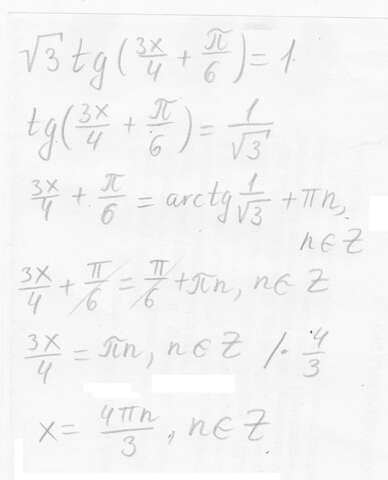 √3 tg(3x/4 + π/6) = 1
tg(3x/4 + π/6) = 1/√3
3x/4 + π/6 = arctg 1/√3 + πn,
n ∈ Z
3x/4 + π/6 = π/6 + πn, n ∈ Z
3x/4 = πn, n ∈ Z /· 4/3
x = 4πn/3, n ∈ Z